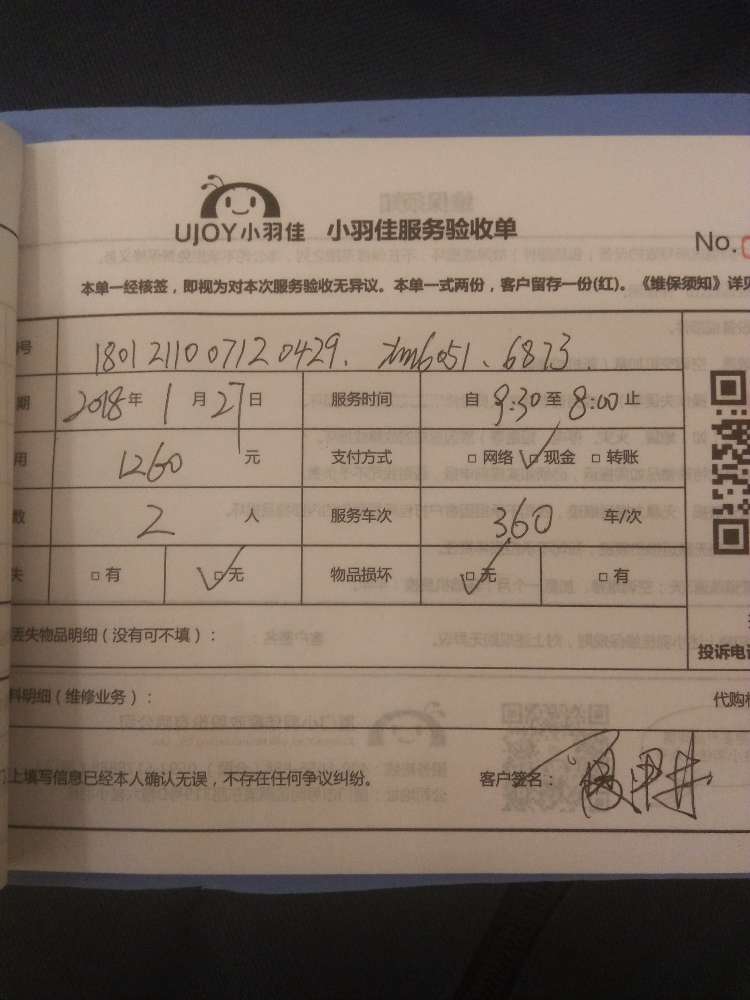 UJOY小羽佳 小羽佳服务验收单
No.
本单一经核签，即视为对本次服务验收无异议。本单一式两份，客户留存一份(红)。《维保须知》详见
号 1801211007120429. 6051、6873
期 2018年 1月27日 服务时间 自 9:30 至 8:00 止
用 1260 元 支付方式 □ 网络 □ 现金 □ 转账
数 2 人 服务车次 360 车/次
失 □ 有 □ 无 物品损坏 □ 无 □ 有
丢失物品明细（没有可不填）：
投诉电话
料明细（维修业务）： 代购
上填写信息已经本人确认无误，不存在任何争议纠纷。 客户签名：